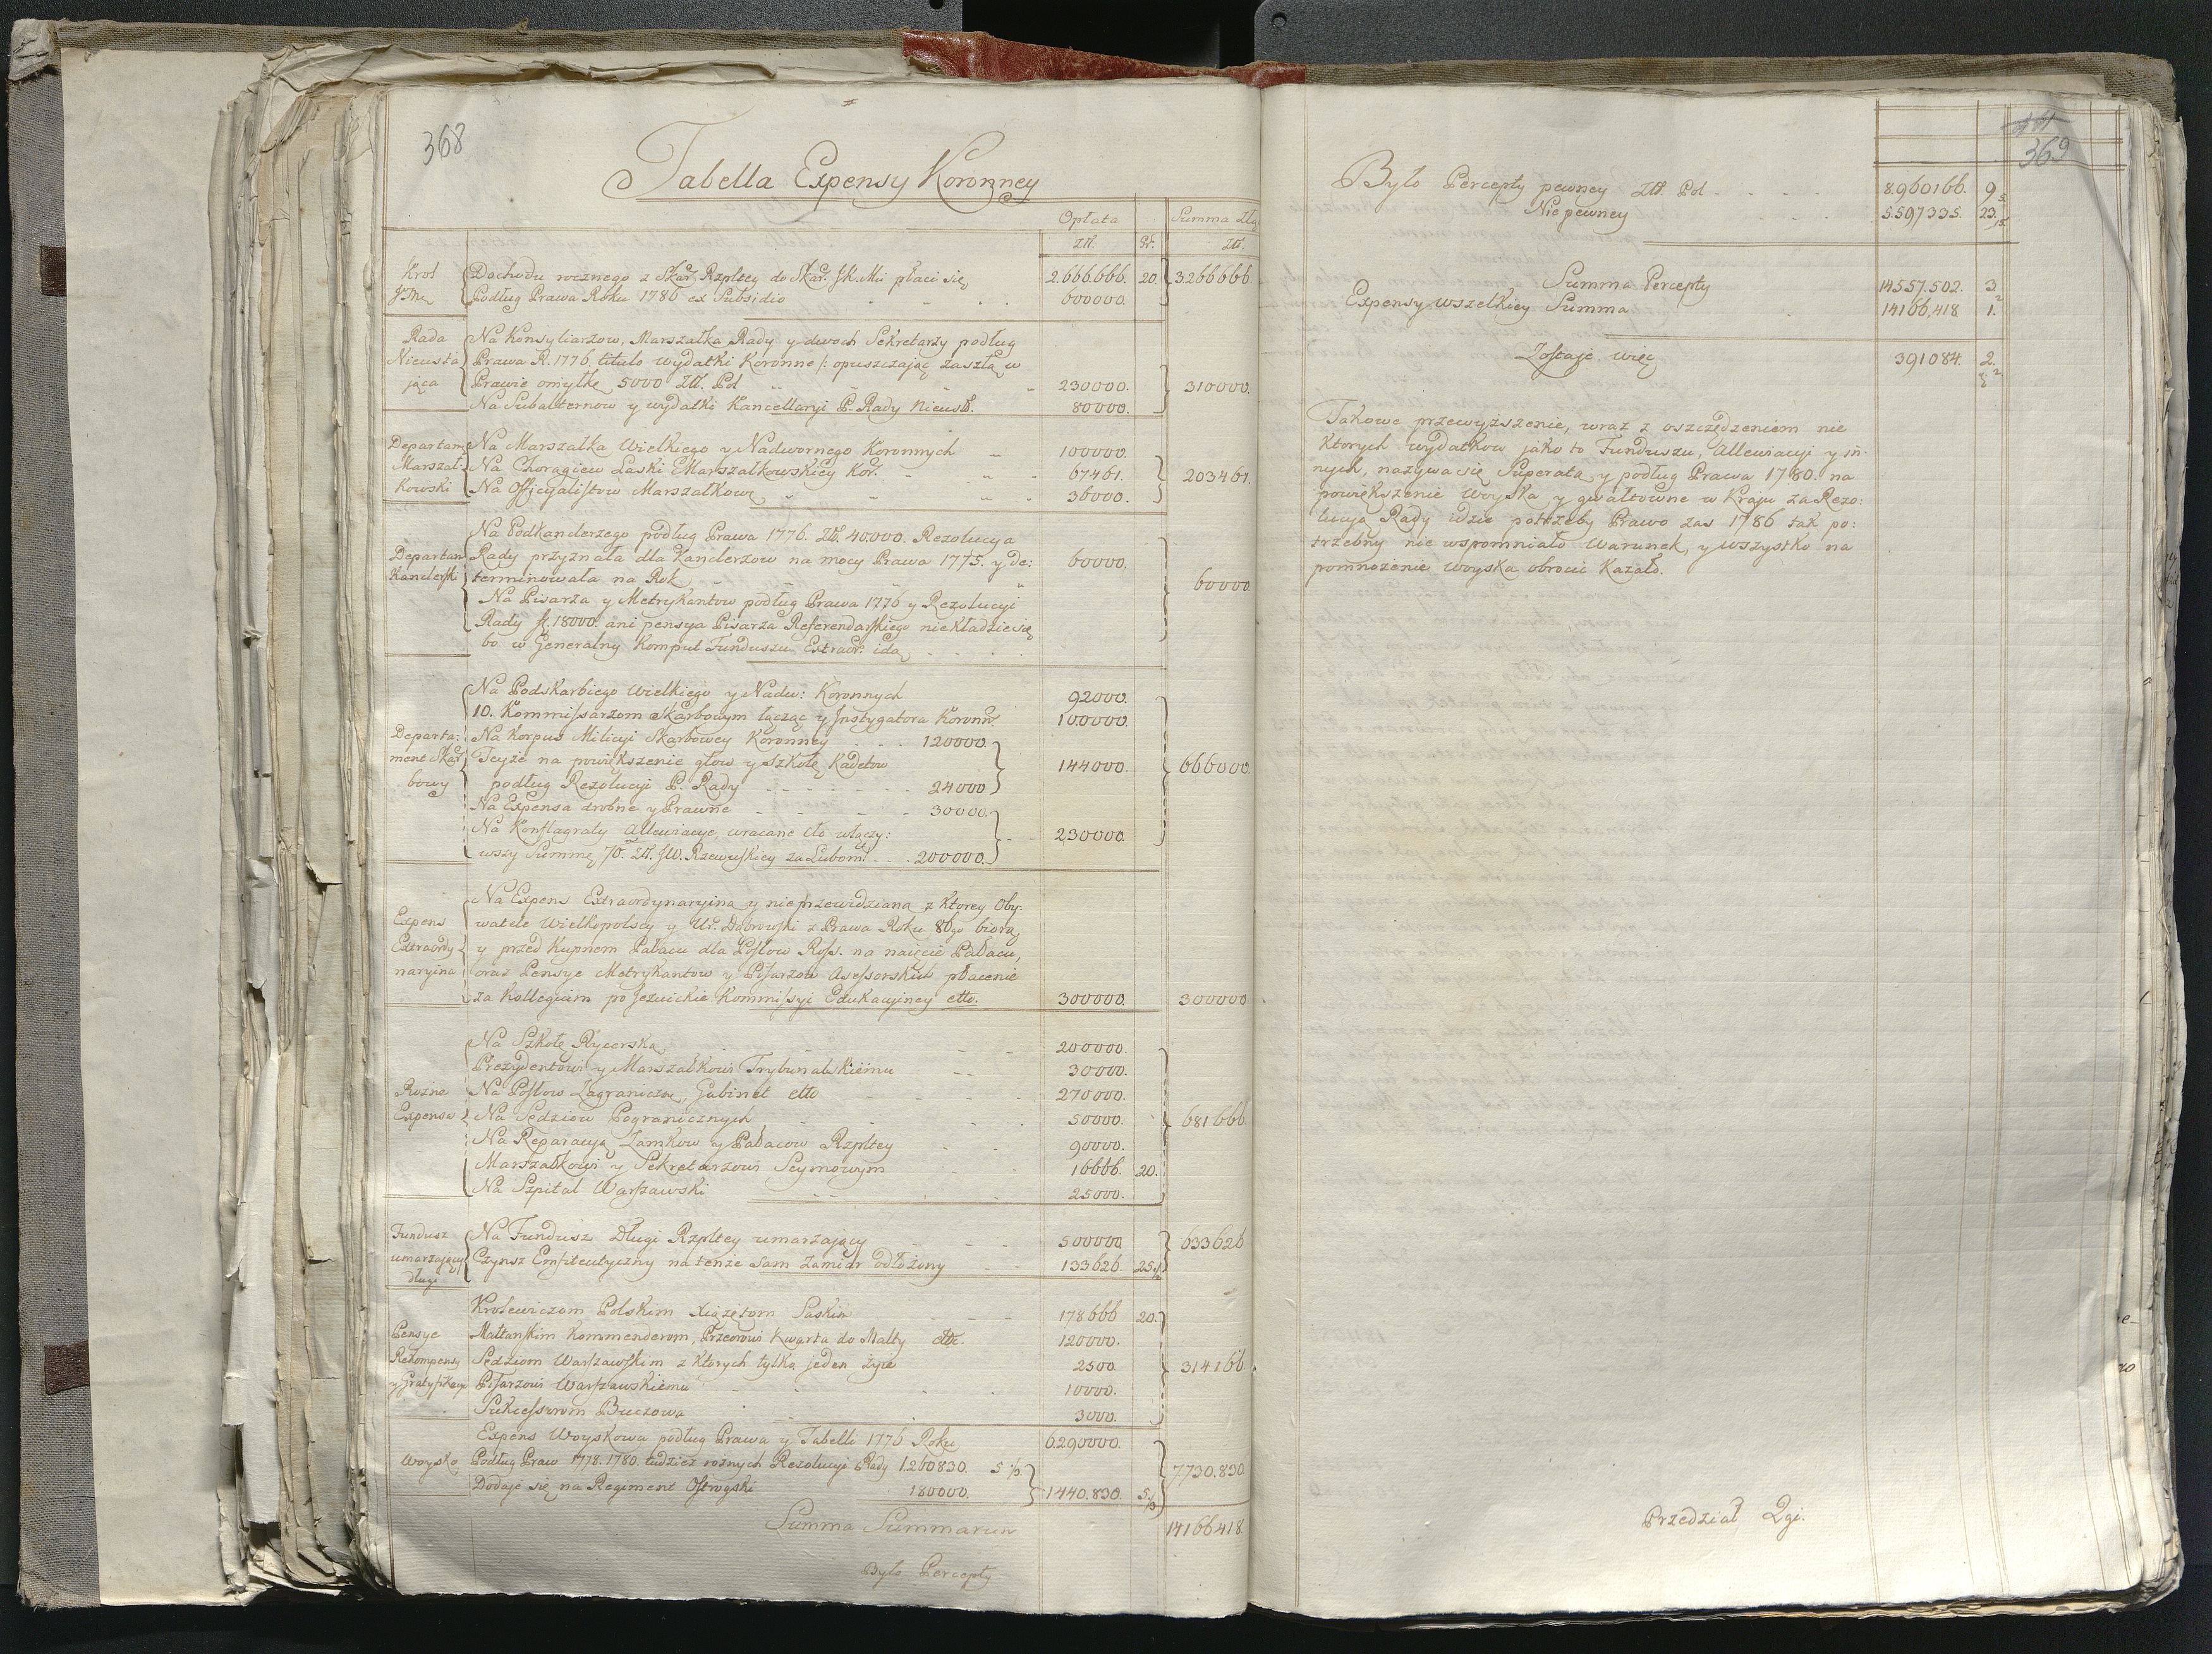 368
Tabella Expensy Koronney
Opłata Summa Złł
Złł. Gr. Złł.
Krol Dochodu rocznego z Skar. Rzpltey do Skar. JK. Mci płaci się 2.666.666. 20. 3.266.666.
JMć Podług Prawa Roku 1786 ex Subsidio 600000.
Rada Na Konsyliarzow, Marszałka Rady y dwoch Sekretarzy podług
Nieusta Prawa R. 1776. titulo wydatki Koronne /: opuszczaiąc zaszłą w
jąca Prawie omyłkę 5000 Złł. Pol 230000. 310000.
Na Subalternow y wydatki Kancellaryi P. Rady Nieust. 80000.
Departam Na Marszałka Wielkiego y Nadwornego Koronnych 100000.
Marszał Na Chorągiew Laski Marszałkowskiey Kor. 67461. 203461.
kowski Na Officyalistow Marszałkow: 36000.
Na Podkanclerzego podług Prawa 1776. Złł. 40000. Rezolucya
Departam Rady przyznała dla Kanclerzow na mocy Prawa 1775. y de: 60000.
Kanclerski terminowała na Rok 60000
Na Pisarza y Metrykantow podług Prawa 1776 y Rezolucyi
Rady f. 18000. ani pensya Pisarza Referendarskiego niekładzie się
bo w Generalny Komput Funduszu Extraor. idą
Na Podskarbiego Wielkiego y Nadw: Koronnych 92000.
10. Kommissarzom Skarbowym łącząc y Instygatora Koronn. 100000.
Departa: Na Korpus Milicyi Skarbowey Koronney 120000.
ment Skar Teyże na powiększenie głow y szkołę Kadetow 144000. 666000.
bowy podług Rezolucyi P. Rady 24000
Na Expensa drobne y Prawne 30000.
Na Konflagraty Allewiacye, wracane cło włączy: 230000.
wszy Summę 70. Złł. JW. Rzewuskiey za Lubom. 200000.
Na Expens Extraordynaryina y nieprzewidziana z ktorey Oby:
Expens watele Wielkopolscy y Ur. Dobrowski z Prawa Roku 80go biorą,
Extraordy y przed Kupnem Pałacu dla Posłow Ross. na naięcie Pałacu,
naryina oraz Pensye Metrykantow y Pisarzow Assessorskich płacenie
za Kollegium po Jezuickie Kommissyi Edukacyiney etto. 300000. 300000
Na Szkołę Rycerską 200000.
Prezydentowi y Marszałkowi Trybunalskiemu 30000.
Rozne Na Posłow Zagraniczn, Gabinet etto 270000.
Expensa Na Sędziow Pogranicznych 50000. 681666
Na Reparacyą Zamkow y Pałacow Rzpltey 90000.
Marszałkowi y Sekretarzowi Seymowym 16666. 20.
Na Szpital Warszawski 25000.
Fundusz Na Fundusz Długi Rzpltey umarzaiący 500000 633626
umarzaiący Czynsz Emfiteutyczny na tenże sam zamiar odłożony 133626. 25.
długi
Krolewiczom Polskim Xiążętom Saskim 178666 20.
Pensye Maltanskim Kommenderom, Przeorowi kwarta do Malty etto. 120000.
Rekompensy Sędziom Warszawskim z ktorych tylko jeden żyie 2500. 314166.
y Gratyfikacye Pisarzowi Warszawskiemu 10000.
Sukcessorom Buczowa 3000.
Expens Woyskowa podług Prawa y Tabelli 1776 Roku 6.290000.
Woysko Podług Praw 1778. 1780. tudzież rożnych Rezolucyi Rady 1.260830. 5 1/2 7.730.830
Dodaje się na Regiment Ostrogski 180000. 1.440.830. 5.
Summa Summarum 14166418
Było Percepty
369
Było Percepty pewney Złł. Pol 8.960166. 9
Niepewney 5.597335. 23.
Summa Percepty 14557.502. 3.
Expensy wszelkiey Summa 14166.418 1.
Zostaje więc 391084. 2.
Takowe przewyższenie, wraz z oszczędzeniem nie
ktorych wydatkow jako to Funduszu, Allewiacyi y in:
nych, nazywa się Superata, y podług Prawa 1780. na
powiększenie woyska y gwałtowne w Kraju za Rezo:
lucyą Rady idzie potrzeby Prawo zas 1786 tak po:
trzebny nie wspomniało Warunek, y wszystko na
pomnożenie woyska obrocić Kazało.
Przedział 2gi.